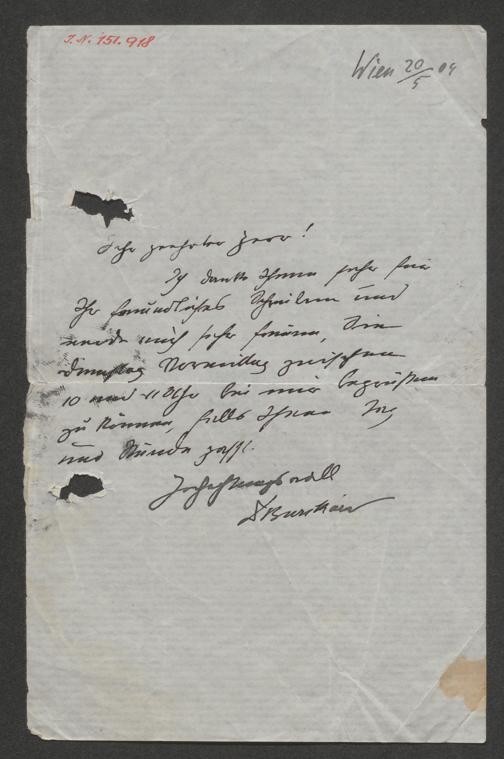 I. N. 151.918
Wien 20/5 04
Sehr geehrter Herr!
Ich danke Ihnen sehr für
Ihr freundliches Schreiben und
werde mich sehr freuen, Sie
Dienstag Vormittag zwischen
10 und 11 Uhr bei mir begrüßen
zu können, falls Ihnen Tag
und Stunde passt.
Hochachtungsvoll